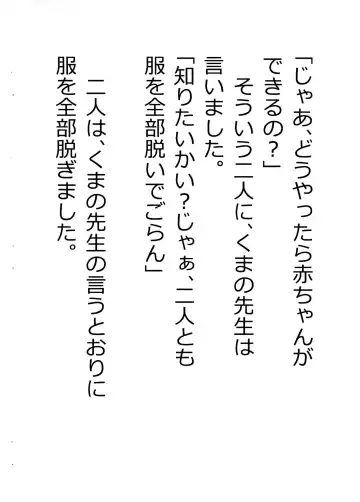 「じゃあ、どうやったら赤ちゃんが
できるの？」
　そういう二人に、くまの先生は
言いました。
「知りたいかい？じゃぁ、二人とも
服を全部脱いでごらん」
　二人は、くまの先生の言うとおりに
服を全部脱ぎました。